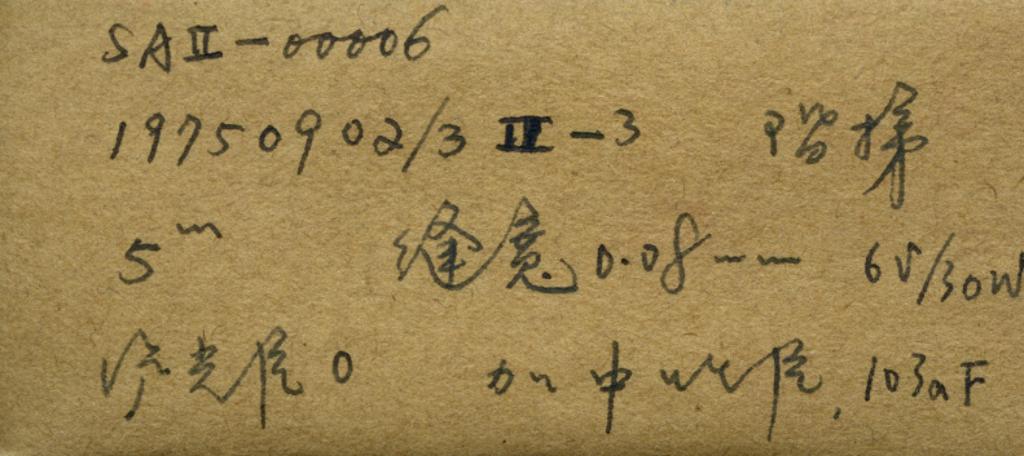 SAⅡ-00006
19750902/3 Ⅱ-3 阶梯
5m 缝宽0.08mm 6V/30W
滤光片0 加中性片,103aF